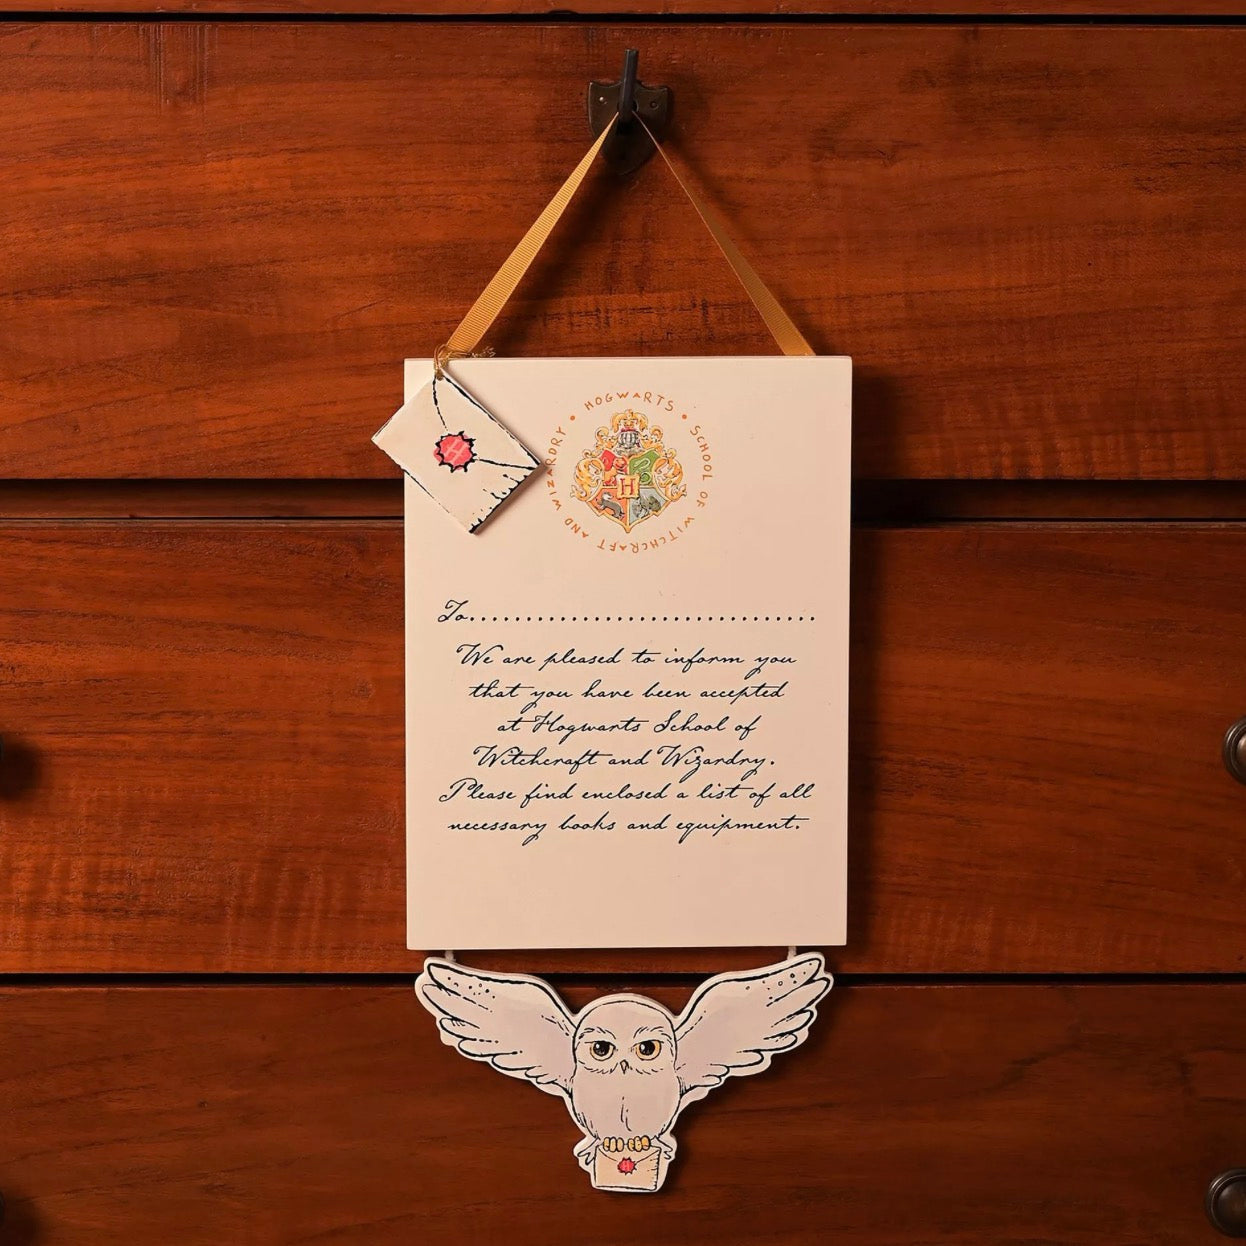 HOGWARTS • SCHOOL OF WITCHCRAFT AND WIZARDRY •
H
H
To..............................
We are pleased to inform you
that you have been accepted
at Hogwarts School of
Witchcraft and Wizardry.
Please find enclosed a list of all
necessary books and equipment.
H